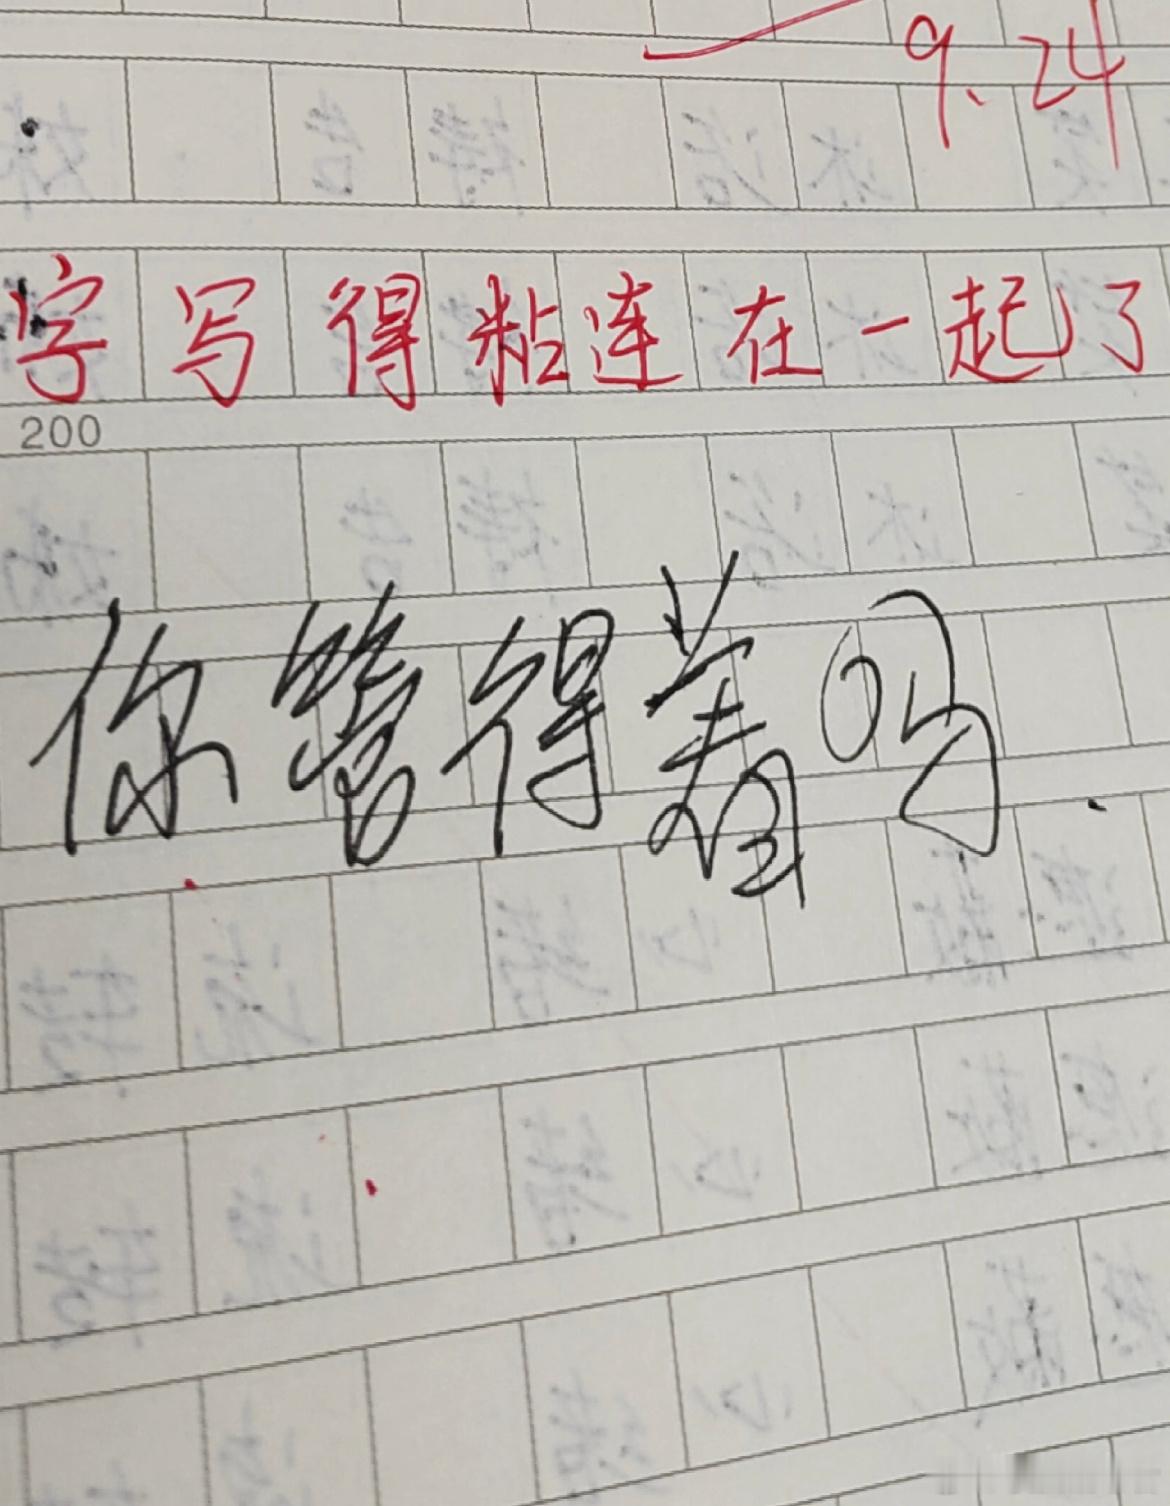 9.24
字写得粘连在一起了
200
你管得着吗.